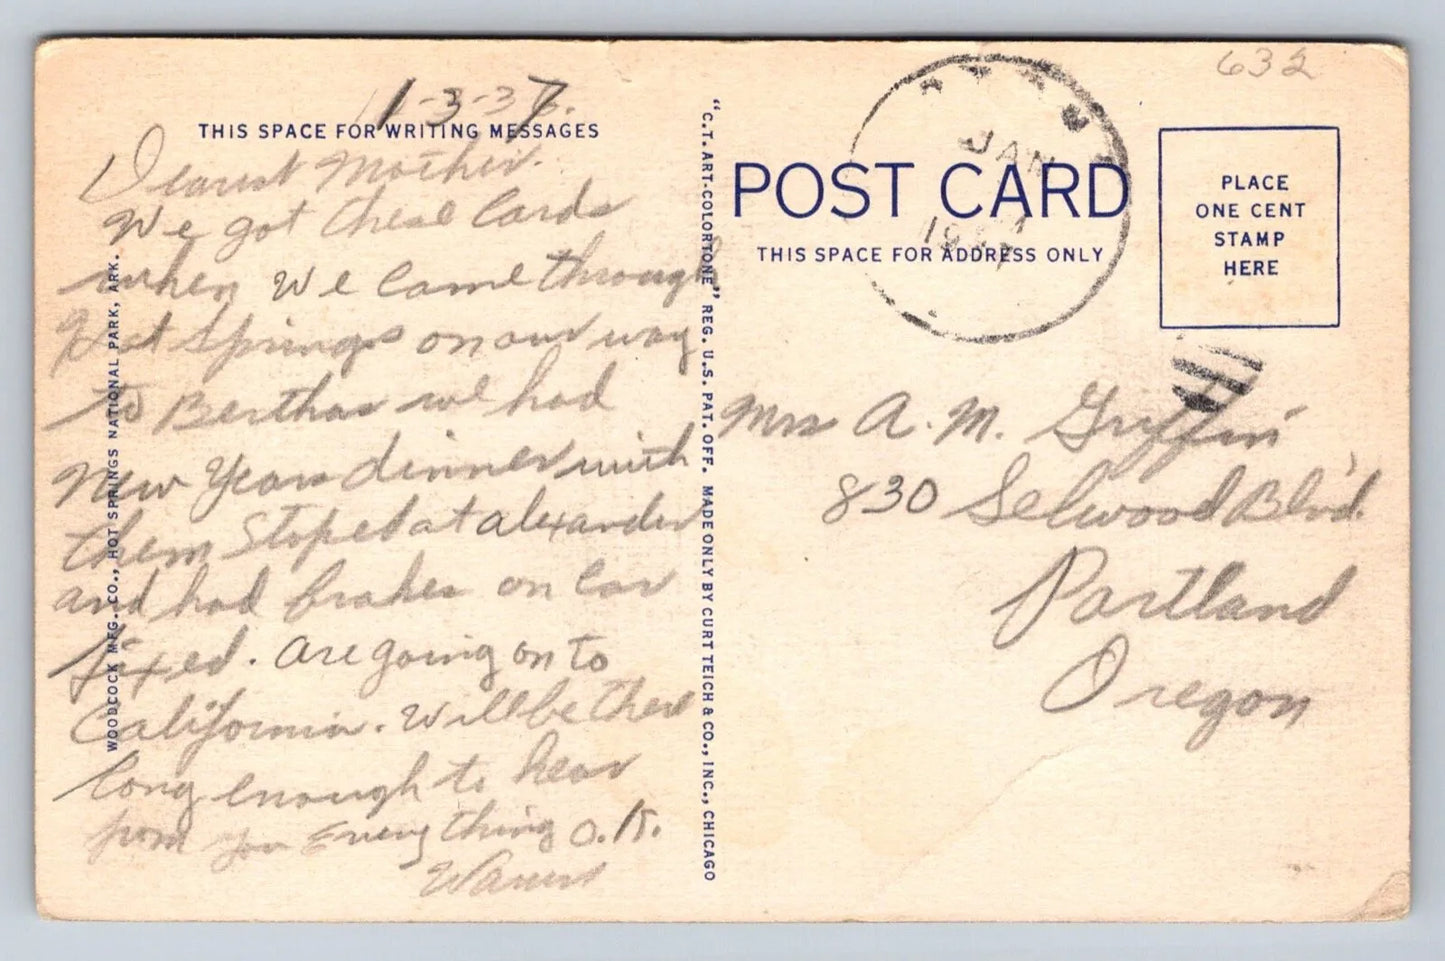 632
1-3-37.
THIS SPACE FOR WRITING MESSAGES
Dearest Mother.
We got these Cards
when We Came through
Hot Springs on our way
to Berthas we had
New Years dinner with
them Stoped at alexander
and had brakes on Car
fixed. are going on to
California. Will be there
long enough to hear
from you Everything O.K.
WOODCOCK MFG. CO., HOT SPRINGS NATIONAL PARK, ARK.
"C.T. ART-COLORTONE" REG. U.S. PAT. OFF. MADE ONLY BY CURT TEICH & CO., INC., CHICAGO
POST CARD
THIS SPACE FOR ADDRESS ONLY
JAN
PLACE
ONE CENT
STAMP
HERE
Mrs A. M. Griffin
830 Selwood Blvd.
Portland
Oregon